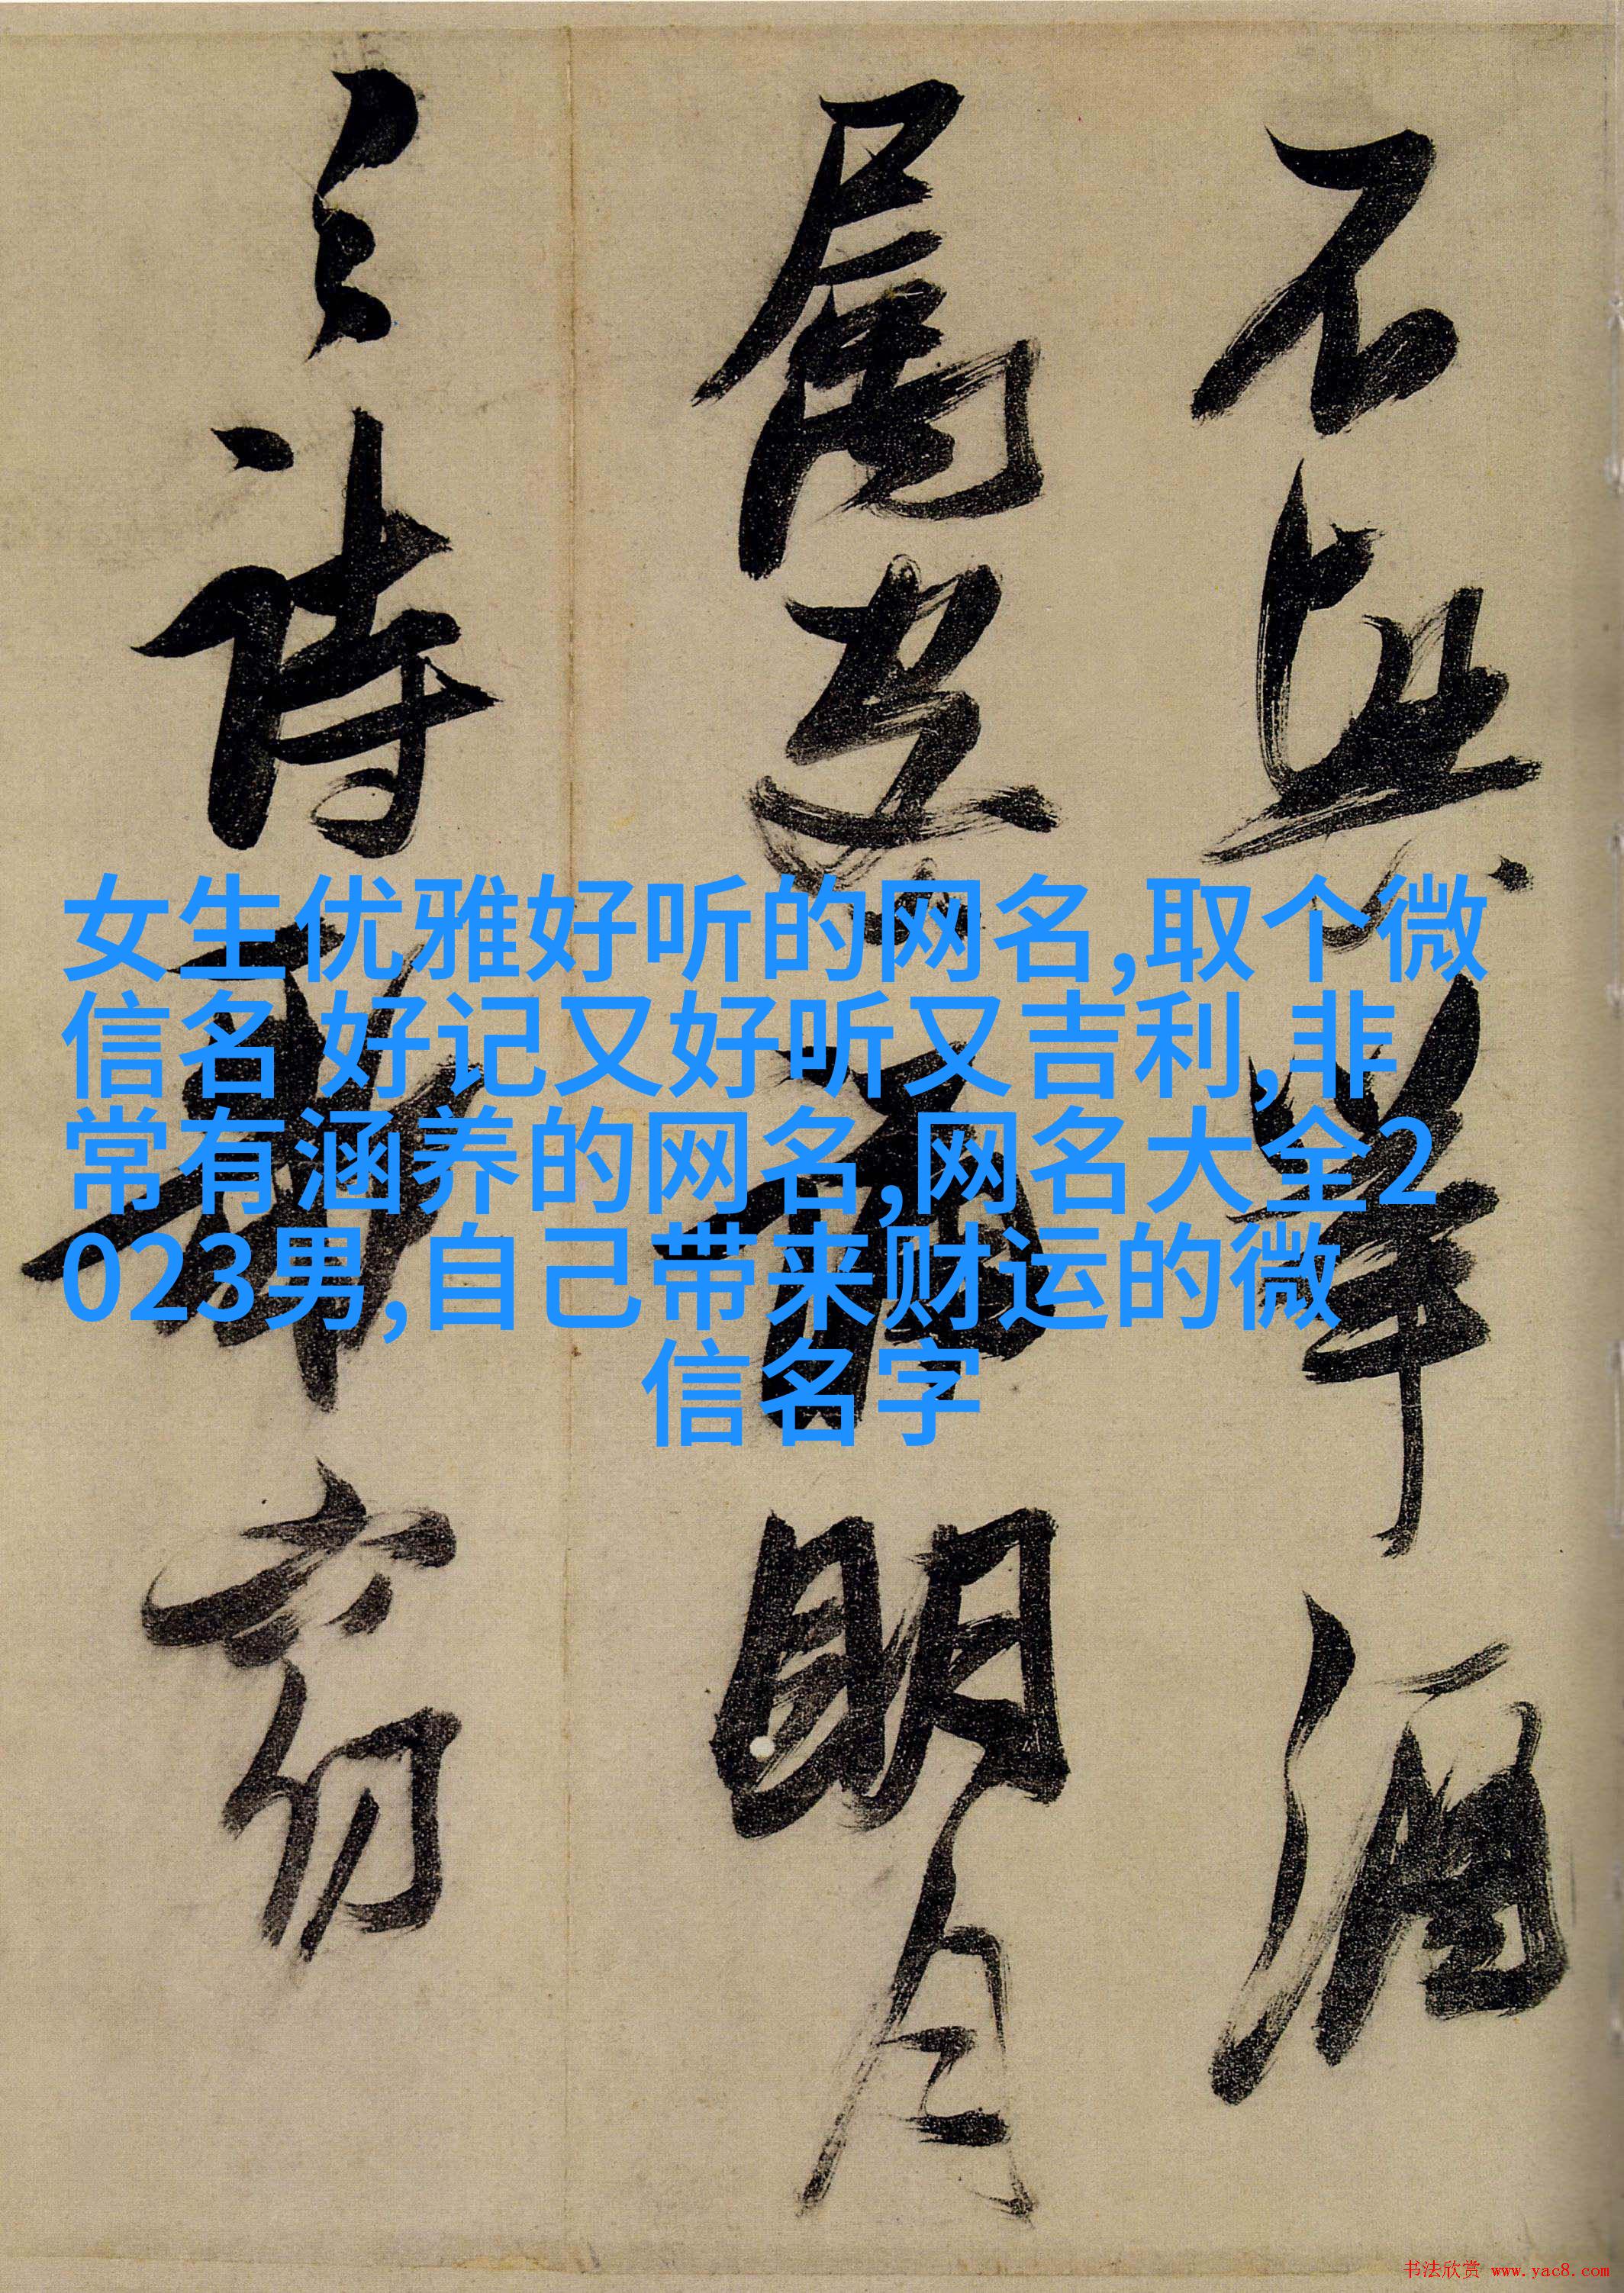 不興舉酒
屬客誦明月
之詩歌窈
女生优雅好听的网名,取个微
信名 好记又好听又吉利,非
常有涵养的网名,网名大全2
023男,自己带来财运的微
信名字
书法欣赏 www.yac8.com